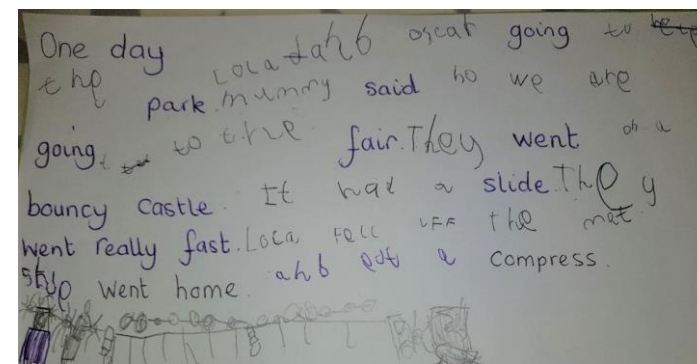 One day Lola ahb oscar going to
the park. mummy said no we are
going to the fair. They went on a
bouncy castle. It had a slide. They
went really fast. Lola fell off the mat.
She went home. ahb got a compress.